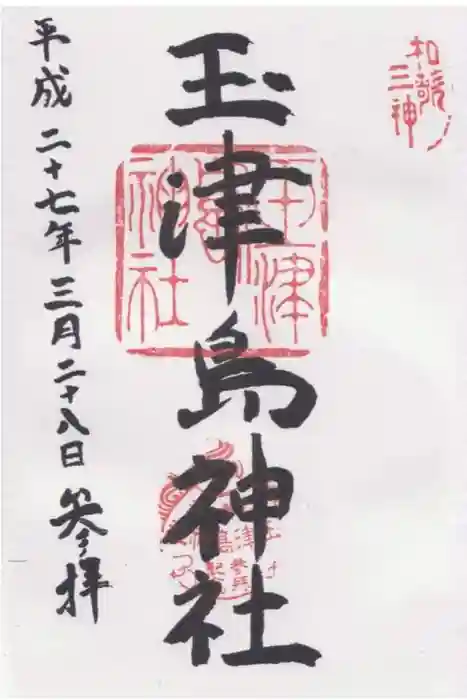 和歌ノ
三神
玉津島神社
玉津
島
神社
平成二十七年三月二十八日 参拝